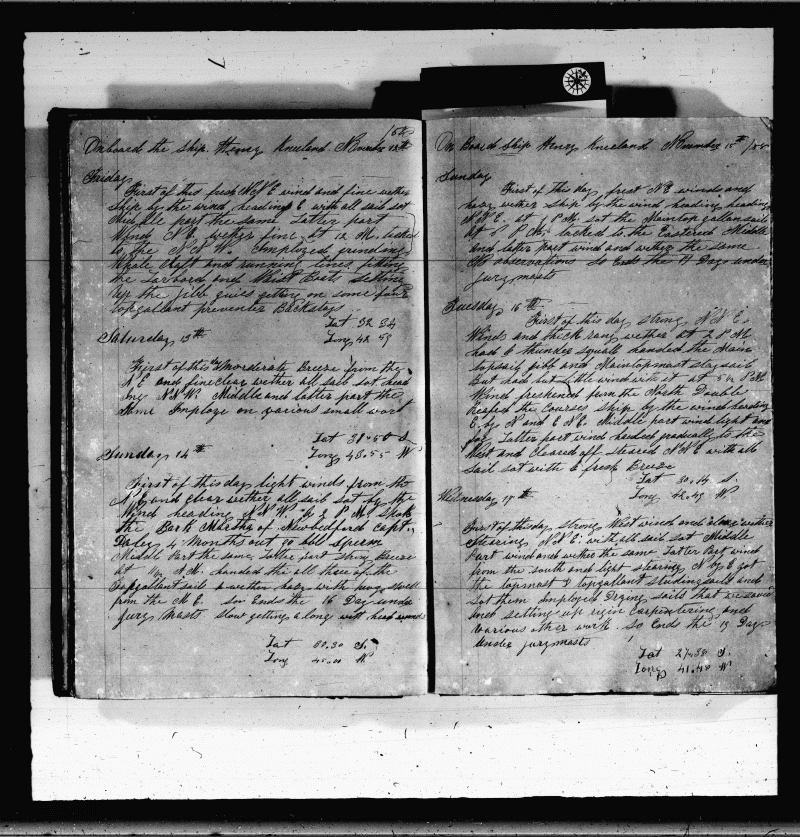 Onboard the Ship Henry Kneeland November 12th
Friday
First of this fresh N E wind and fine wether
Ship by the wind heading E with all sail sot
Middle part the same Latter part
Wind N E wether fine at 12 M. tacked
to the N N W. Imployed grinding
Whale Craft and running lines fitting
the Larbord and Waist Boats setting
up the jibb guies getting on some fore
topgallant preventer Backstays
Lat 32 34
Long 42 59
Saturday 13th
First of this day Morderate Breeze from the
N. E and fine clear wether all sail sot head
ing N N W. Middle and latter part the
Same Imploye on various small work
Lat 31-50 S.
Long 43-55 W
Sunday 14th
First of this day light winds from the
N. E and clear wether all sail sot by the
Wind heading N N W. At 2 P M. Spok
the Bark of Newbedford Capt.
4 Months out 90 bbl Sperm
Middle Part the same Latter part Strong Breeze
at A M. handed the all three of the
topgallant sails wether hazy with swell
from the N E. So Ends the 16 Day under
jury Masts Slow getting along with head winds
Lat 30.30 S.
Long 45.00 W
On Board Ship Henry Kneeland November 15th
Sunday
First of this day N E winds and
hazy wether ship by the wind heading
N N E. at P M. sot the Maintopgallantsail
at 8 P M. tacked to the Eastered Middle
and latter part wind and wether the same
No observations So Ends the 17 Days under
jurymasts
Tuesday 16th
First of this day strong N N E.
Winds and thick rany wether at 2 P M.
had a thunder squall handed the Main
topsail jibb and Maintopmast staysail
But had but little wind with it at P M
Wind freshened from the North Double
Reefed the Courses Ship by the wind heading
E by N and E N E. Middle part wind light and
Latter part wind hauled gradually to the
West and Cleared off steared N N E with all
sail sot with a fresh Breeze
Lat 30.14 S.
Long 42.49 W
Wednesday 17th
First of this day strong West wind and clear wether
Stearing N N E. with all sail sot Middle
Part wind and wether the same Latter Part wind
from the South and light stearing N by E got
the topmast & topgallant studingsails and
sot them Imployed Drying sails that we saved
and setting up rigin Carpentering and
various other work. So Ends the 19 Days
Under jurymasts
Lat 27.38 S.
Long 41.48 W